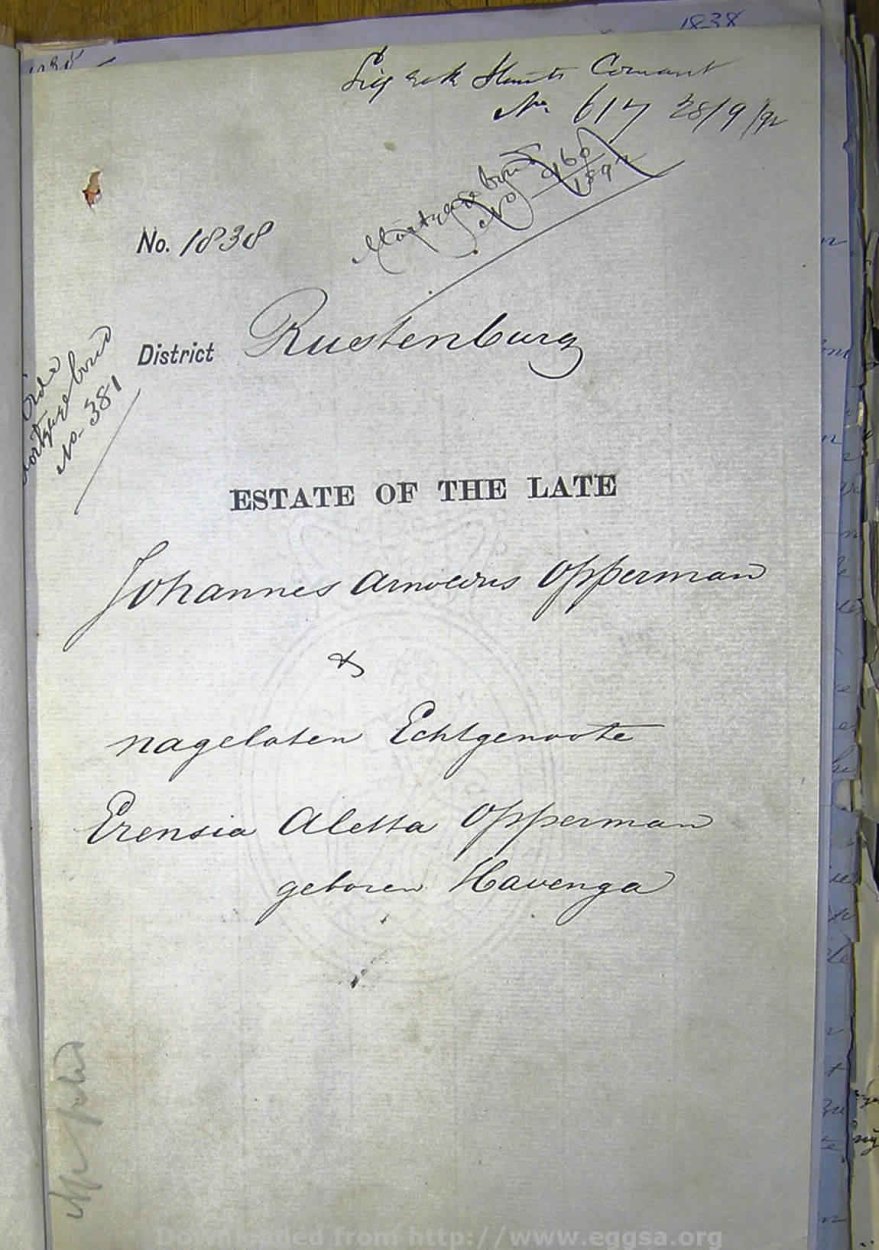 1838
No. 617 28/9/92
Mortgage bond
No 160/1892
No. 1838
District Rustenburg
Mortgage bond
No. 381
ESTATE OF THE LATE
Johannes Arnoldus Opperman
&
nagelaten Echtgenoote
Erensia Aletta Opperman
geboren Havenga
Downloaded from http://www.eggsa.org